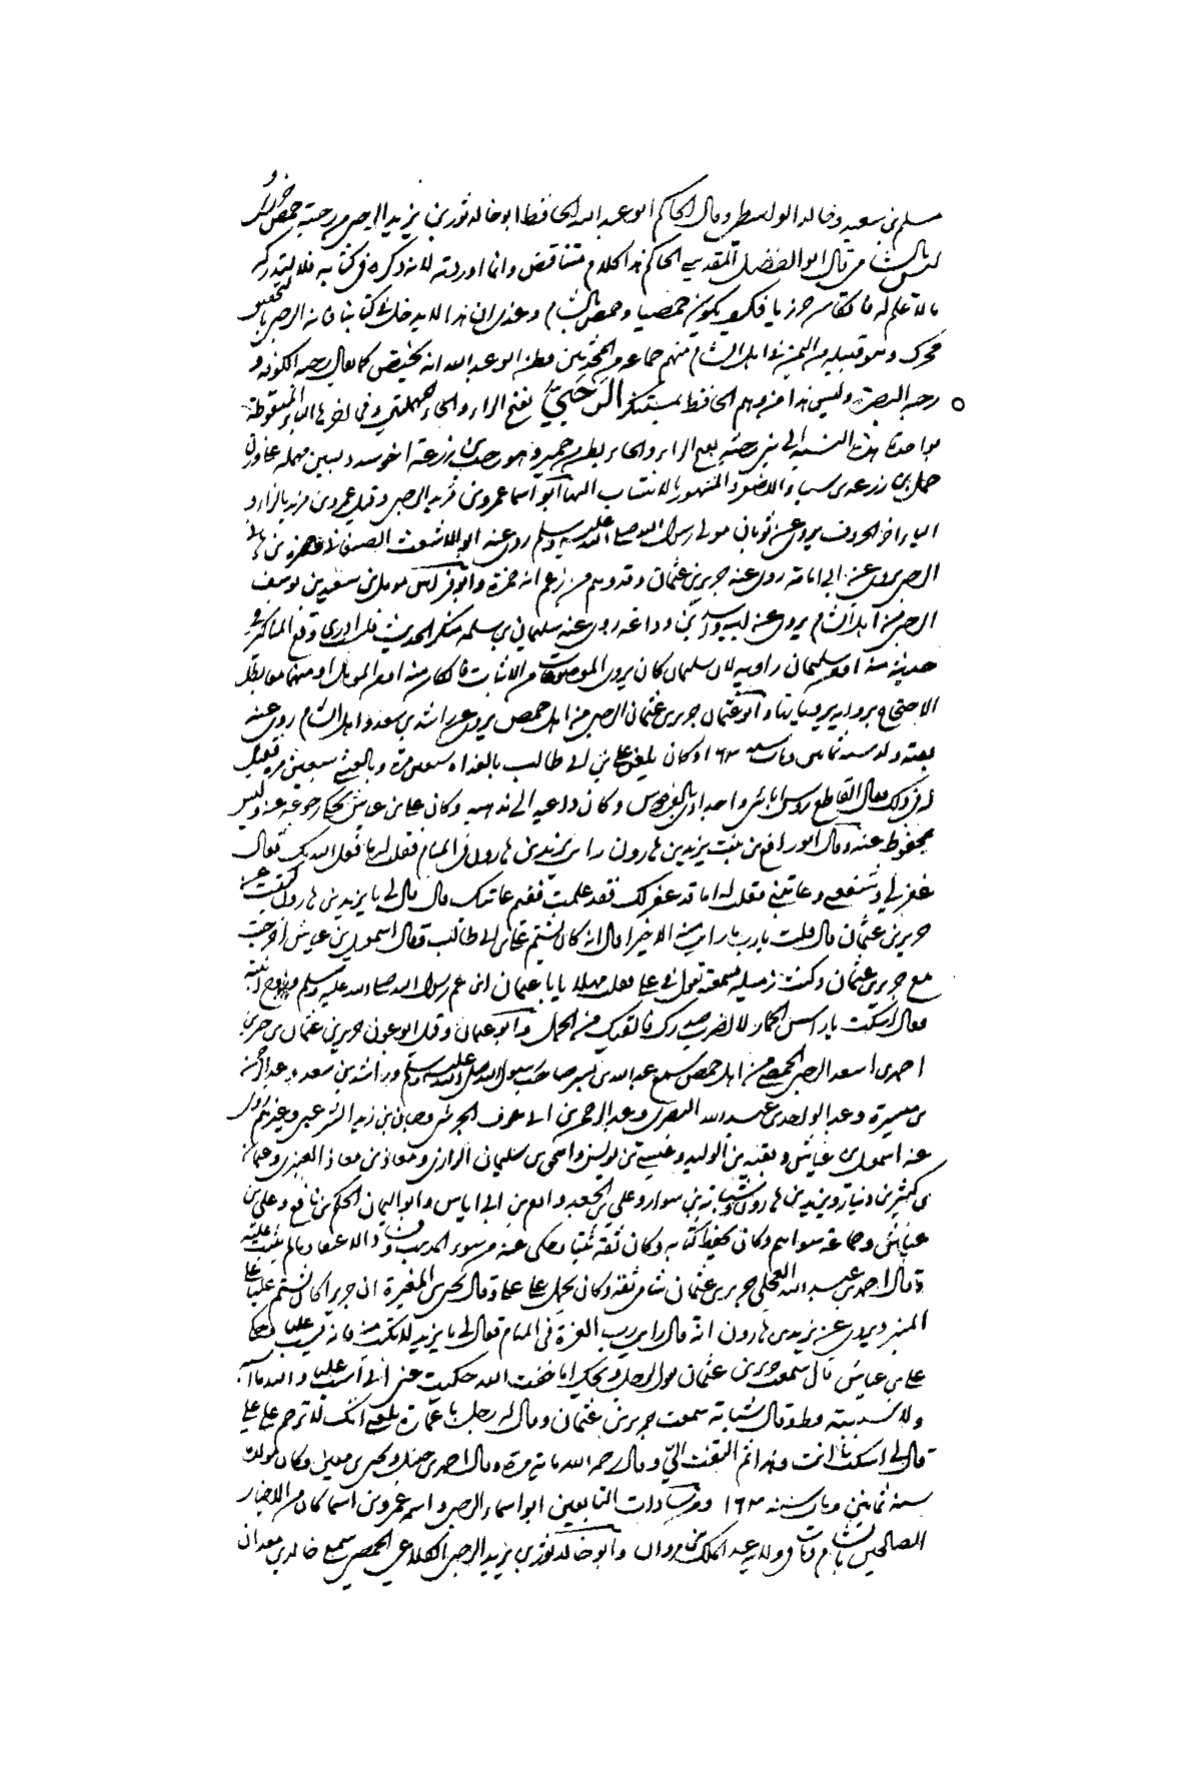 مسلم بن سعيد وخالد الواسطي وقال الحاكم ابو عبد الله الحافظ ابو خالد ثور بن يزيد الرحبي من رحبة حمص
بالشام قال ابو الفضل المقدسي الحاكم هذا كلام متناقض وانما اوردته لانه ذكره في كتابه فلا يستدركه
من لا علم له فيكون حمصيا وحمص بالشام وعندي ان هذا لا يدخل في كتابنا فانه الرحبي
محرك وهو قبيلة من اليمن في اهل الشام منهم جماعة من المحدثين فظن ابو عبد الله انه كما يقال رحبة الكوفة و
رحبة البصرة وليس هذا من وهم الحافظ الرَحَبيُّ بفتح الراء والحاء المهملتين وفي اخرها الباء المنقوطة
بواحدة هذه النسبة الى بني رحبة بفتح الراء والحاء بطن من حمير وهو رحبة بن زرعة
بن زرعة بن سبا الاصغر والمشهور بالانتساب اليها ابو اسما عمرو بن مرثد الرحبي وقيل عمرو بن مزيد بالزاء و
الياء اخر الحروف يروي عن ثوبان مولى رسول الله صلى الله عليه وسلم روى عنه ابو الاشعث الصنعاني
الرحبي يروي عن ابي امامة روى عنه حريز بن عثمان وقد وهم من زعم انه ضمرة وابو فراس مومل بن سعيد بن يوسف
الرحبي من اهل الشام يروي عن ابيه واسد بن وداعة روى عنه سليمان بن سلمة منكر الحديث فلا ادري وقع المناكير في
حديثه منه او من سليمان راويه لان سليمان كان يروي الموضوعات من الاثبات فان كان منه او من المومل او منهما معا بطل
الاحتجاج بروايه يرويانها وابو عثمان حريز بن عثمان الرحبي من اهل حمص يروي عن راشد بن سعد واهل الشام روى عنه
بقية ولد سنة ثمانين ومات سنة ١٦٣ وكان يلعن علي بن ابي طالب بالغداة سبعين مرة وبالعشي سبعين مرة فقيل
له في ذلك فقال القاطع روس ابائي واجدادي بالفوس وكان داعية الى مذهبه وكان علي بن عياش يحكي رجوعه عنه وليس
بمحفوظ عنه وقال ابو رافع بن بنت يزيد بن هارون رايت يزيد بن هارون في المنام فقلت له ما فعل الله بك فقال
غفر لي وشفعني وعاتبني فقلت له اما قد غفر لك فقد علمت ففيم عاتبك قال قال لي يا يزيد بن هارون كتبت عن
حريز بن عثمان قال قلت يا رب ما رايت منه الا خيرا قال انه كان يشتم علي بن ابي طالب فقال اسمعيل بن عياش خرجت
مع حريز بن عثمان وكنت زميله فسمعته يقول في علي فقلت مهلا يا با عثمان ابن عم رسول الله صلى الله عليه وسلم وزوج ابنته
فقال اسكت يا راس الحمار لا اضرب صدرك فالقيك من الحمل وابو عثمان وقيل ابو عون حريز بن عثمان بن جبر بن
احمر بن اسعد الرحبي الحمصي من اهل حمص سمع عبد الله بن بسر صاحب رسول الله صلى الله عليه وسلم وراشد بن سعد وعبد الرحمن
بن ميسرة وعبد الواحد بن عبد الله النصري وعبد الرحمن بن ابي عوف الجرشي وحبان بن زيد الشرعبي وغيرهم روى
عنه اسمعيل بن عياش وبقية بن الوليد وعيسى بن يونس واسحق بن سليمان الرازي ومعاذ بن معاذ العنبري وعثمان
بن كثير بن دينار ويزيد بن هارون وشبابة بن سوار وعلي بن الجعد وادم بن ابي اياس وابو اليمان الحكم بن نافع وعلي بن
عياش وجماعة سواهم وكان يحفظ كتابه وكان ثقة ثبتا وحكي عنه من سوء المذهب وفساد الاعتقاد ما لم يثبت عليه
وقال احمد بن عبد الله العجلي حريز بن عثمان شامي ثقة وكان يحمل على علي وقال يحيى بن المغيرة ان حريزا كان يشتم عليا على
المنبر ويروى عن يزيد بن هارون انه قال رايت رب العزة في المنام فقال لي يا يزيد لا تكتب منه فانه يسب عليا وحكى
علي بن عياش قال سمعت حريز بن عثمان يقول لرجل ويحك اما خفت الله حكيت عني اني اسب عليا والله ما اسبه
ولا سببته قط وقال شبابة سمعت حريز بن عثمان وقال له رجل يا با عثمان بلغني انك لا ترحم على علي
قال لي اسكت ما انت وهذا ثم التفت الي وقال رحمه الله ماية مرة وقال احمد بن حنبل ويحيى بن معين وكان مولده
سنة ثمانين ومات سنة ١٦٣ ومن سادات التابعين ابو اسماء الرحبي واسمه عمرو بن اسما كان من الاخيار
الصالحين بالشام ومات في ولاية عبد الملك بن مروان وابو خالد ثور بن يزيد الرحبي الكلاعي الحمصي سمع خالد بن معدان